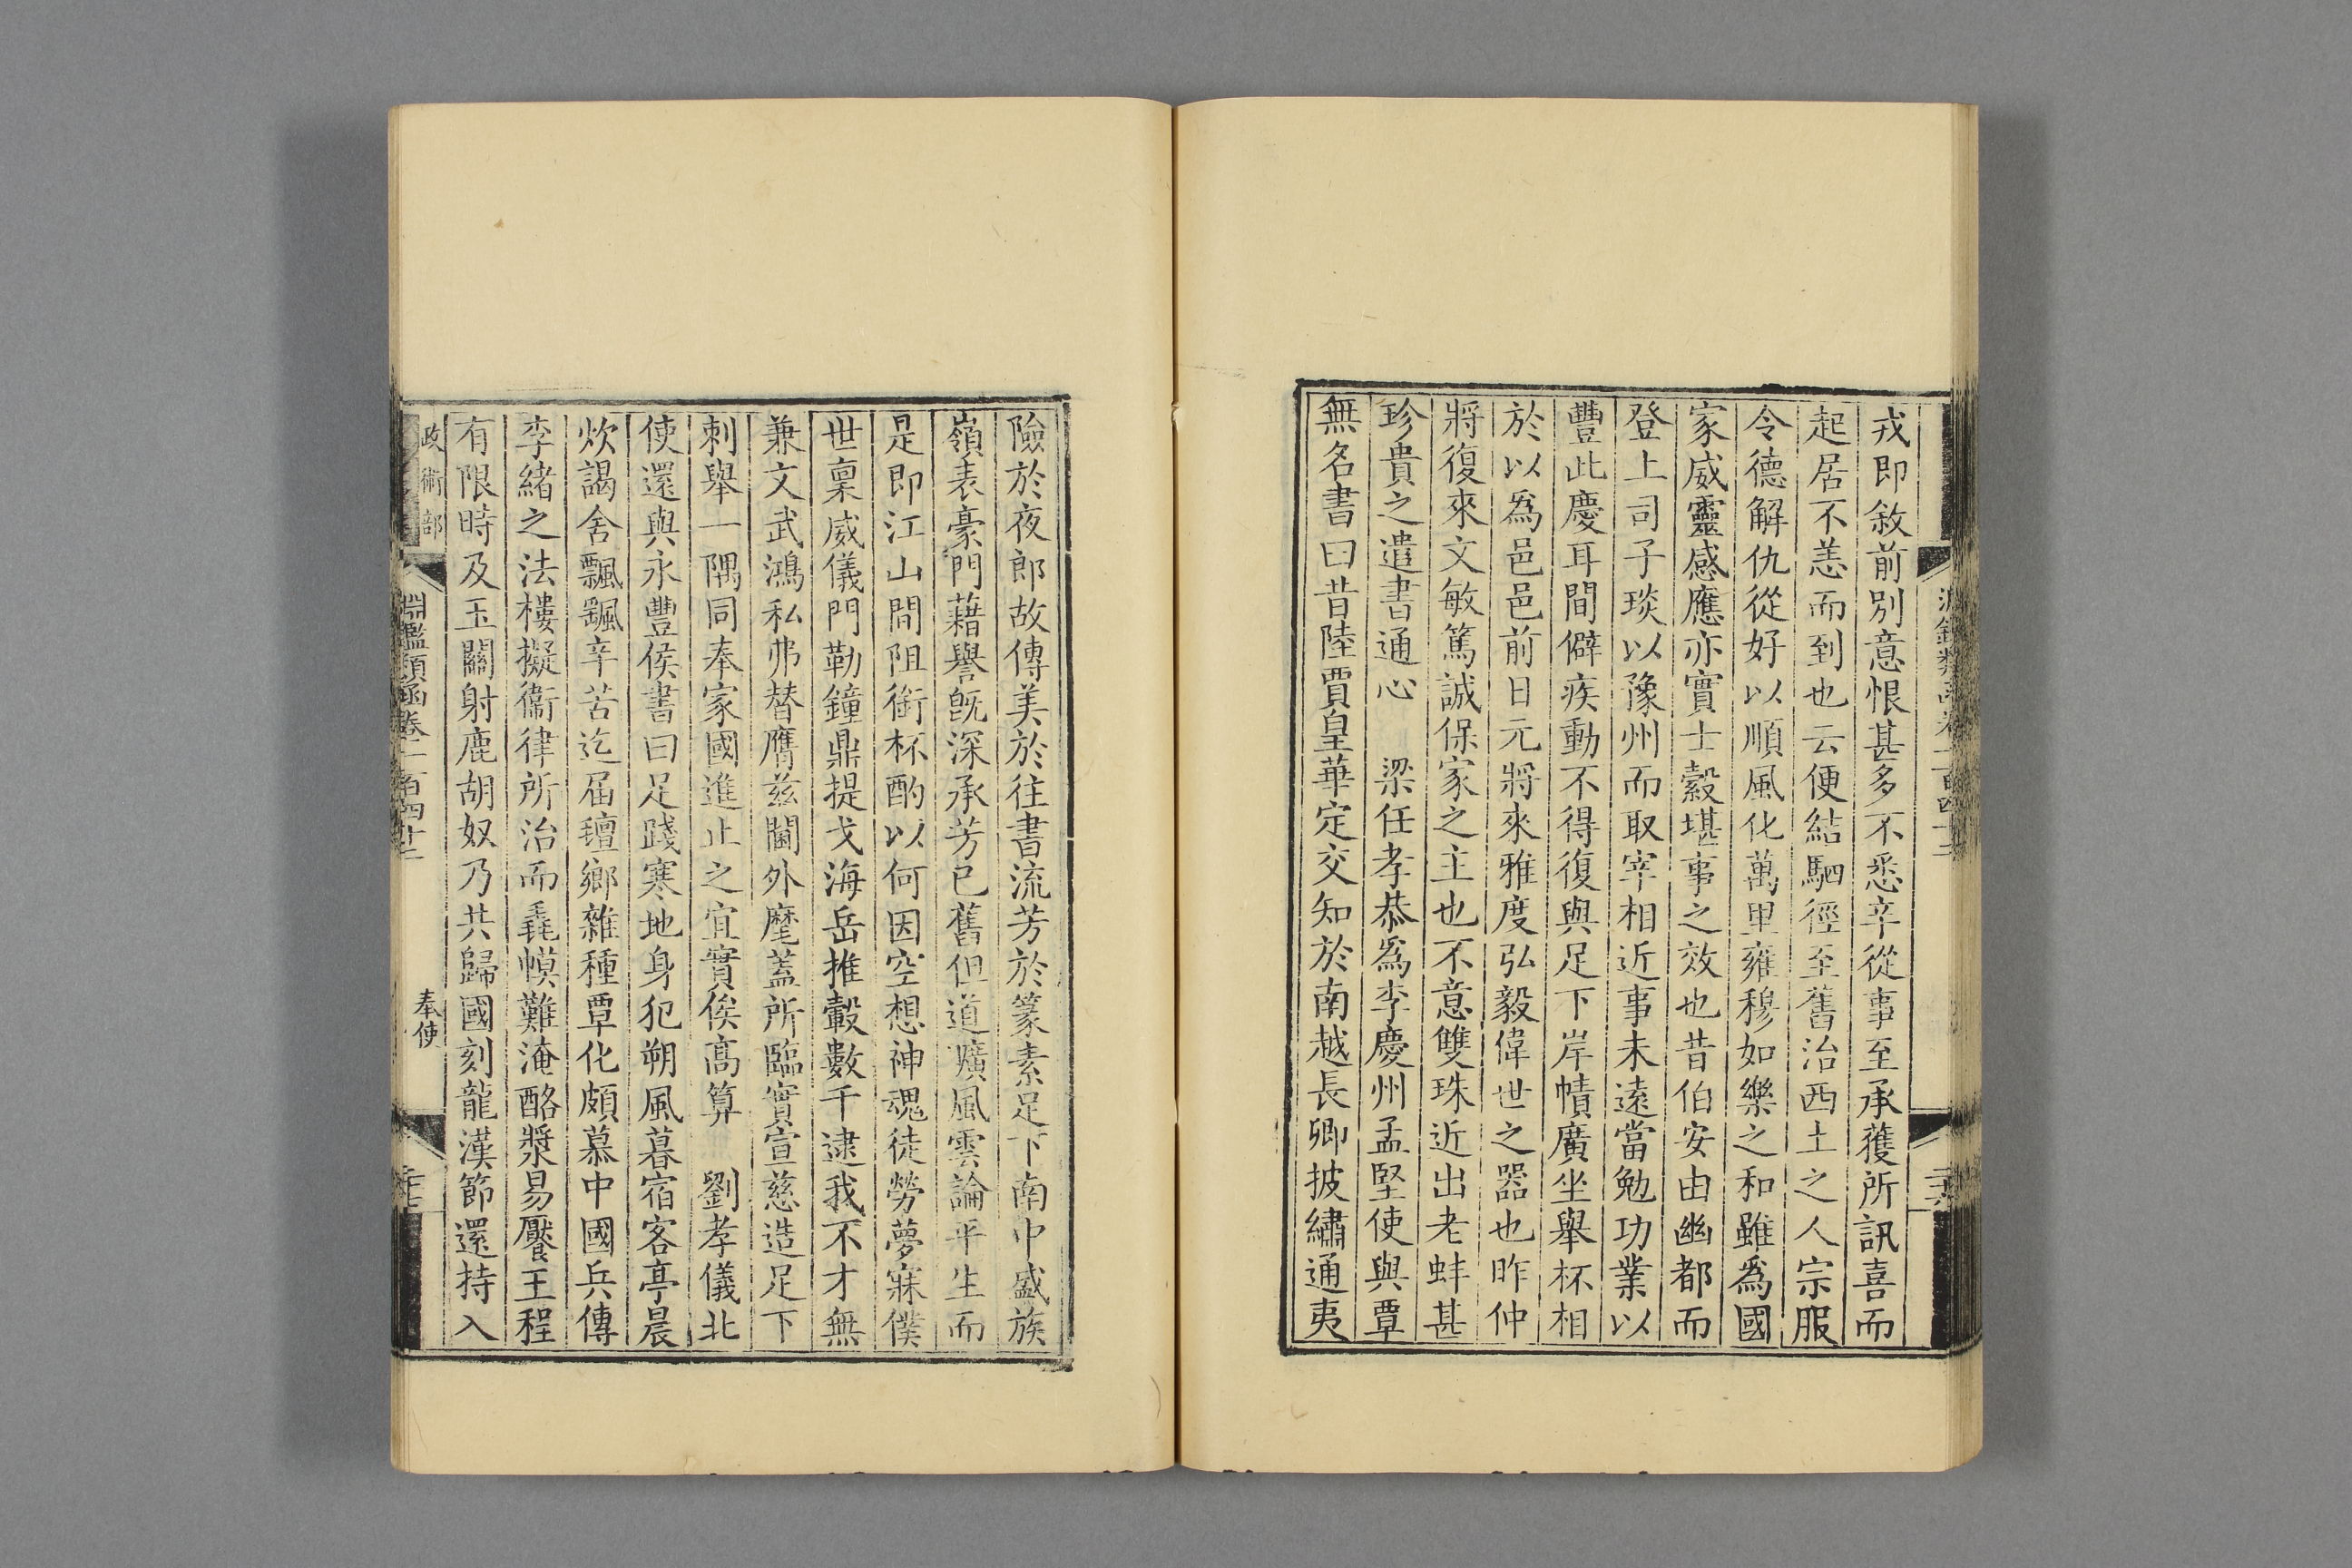 戎即敘前別意恨甚多不悉辛從事至承獲所訊喜而
起居不恙而到也云便結駟徑至舊治西土之人宗服
令德解仇從好以順風化萬里雍穆如樂之和雖爲國
家威靈感應亦實士縠堪事之效也昔伯安由幽都而
登上司子琰以豫州而取宰相近事未遠當勉功業以
豐此慶耳間僻疾動不得復與足下岸幘廣坐舉杯相
於以爲邑邑前日元將來雅度弘毅偉世之器也昨仲
將復來文敏篤誠保家之主也不意雙珠近出老蚌甚
珍貴之遣書通心　梁任孝恭爲李慶州孟堅使與覃
無名書曰昔陸賈皇華定交知於南越長卿披繡通夷
險於夜郎故傳美於往書流芳於篆素足下南中盛族
嶺表豪門藉譽旣深承芳已舊但道曠風雲論平生而
是即江山間阻銜杯酌以何因空想神魂徒勞夢寐僕
世稟威儀門勒鐘鼎提戈海岳推轂數千逮我不才無
兼文武鴻私弗替膺兹閫外麾蓋所臨實宣慈造足下
刺舉一隅同奉家國進止之宜實俟高算　劉孝儀北
使還與永豐侯書曰足踐寒地身犯朔風暮宿客亭晨
炊謁舍飄颻辛苦迄屆氊鄉雜種覃化頗慕中國兵傳
李緒之法樓擬衞律所治而毳幙難淹酪漿易饜王程
有限時及玉關射鹿胡奴乃共歸國刻龍漢節還持入
政術部
淵鑑類函卷一百四十二
奉使